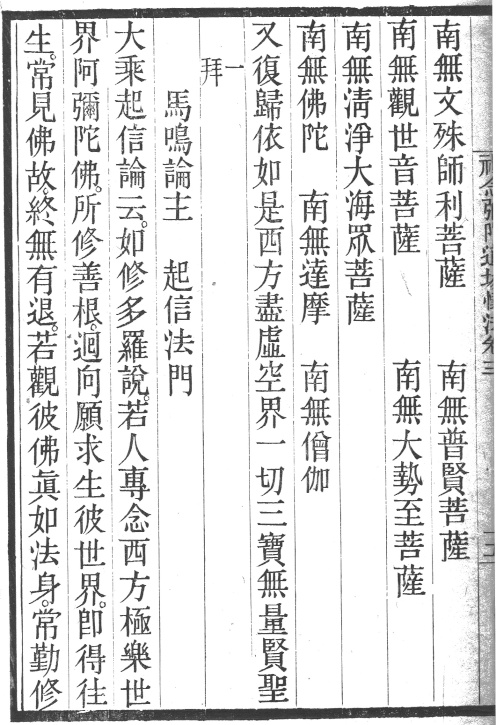 南無文殊師利菩薩　南無普賢菩薩
南無觀世音菩薩　南無大勢至菩薩
南無淸淨大海眾菩薩
南無佛陀　南無達摩　南無僧伽
又復歸依如是西方盡虛空界一切三寶無量賢聖
一拜
馬鳴論主　起信法門
大乘起信論云。如修多羅說。若人專念西方極樂世
界阿彌陀佛。所修善根。迴向願求生彼世界。卽得往
生。常見佛故。終無有退。若觀彼佛眞如法身。常勤修